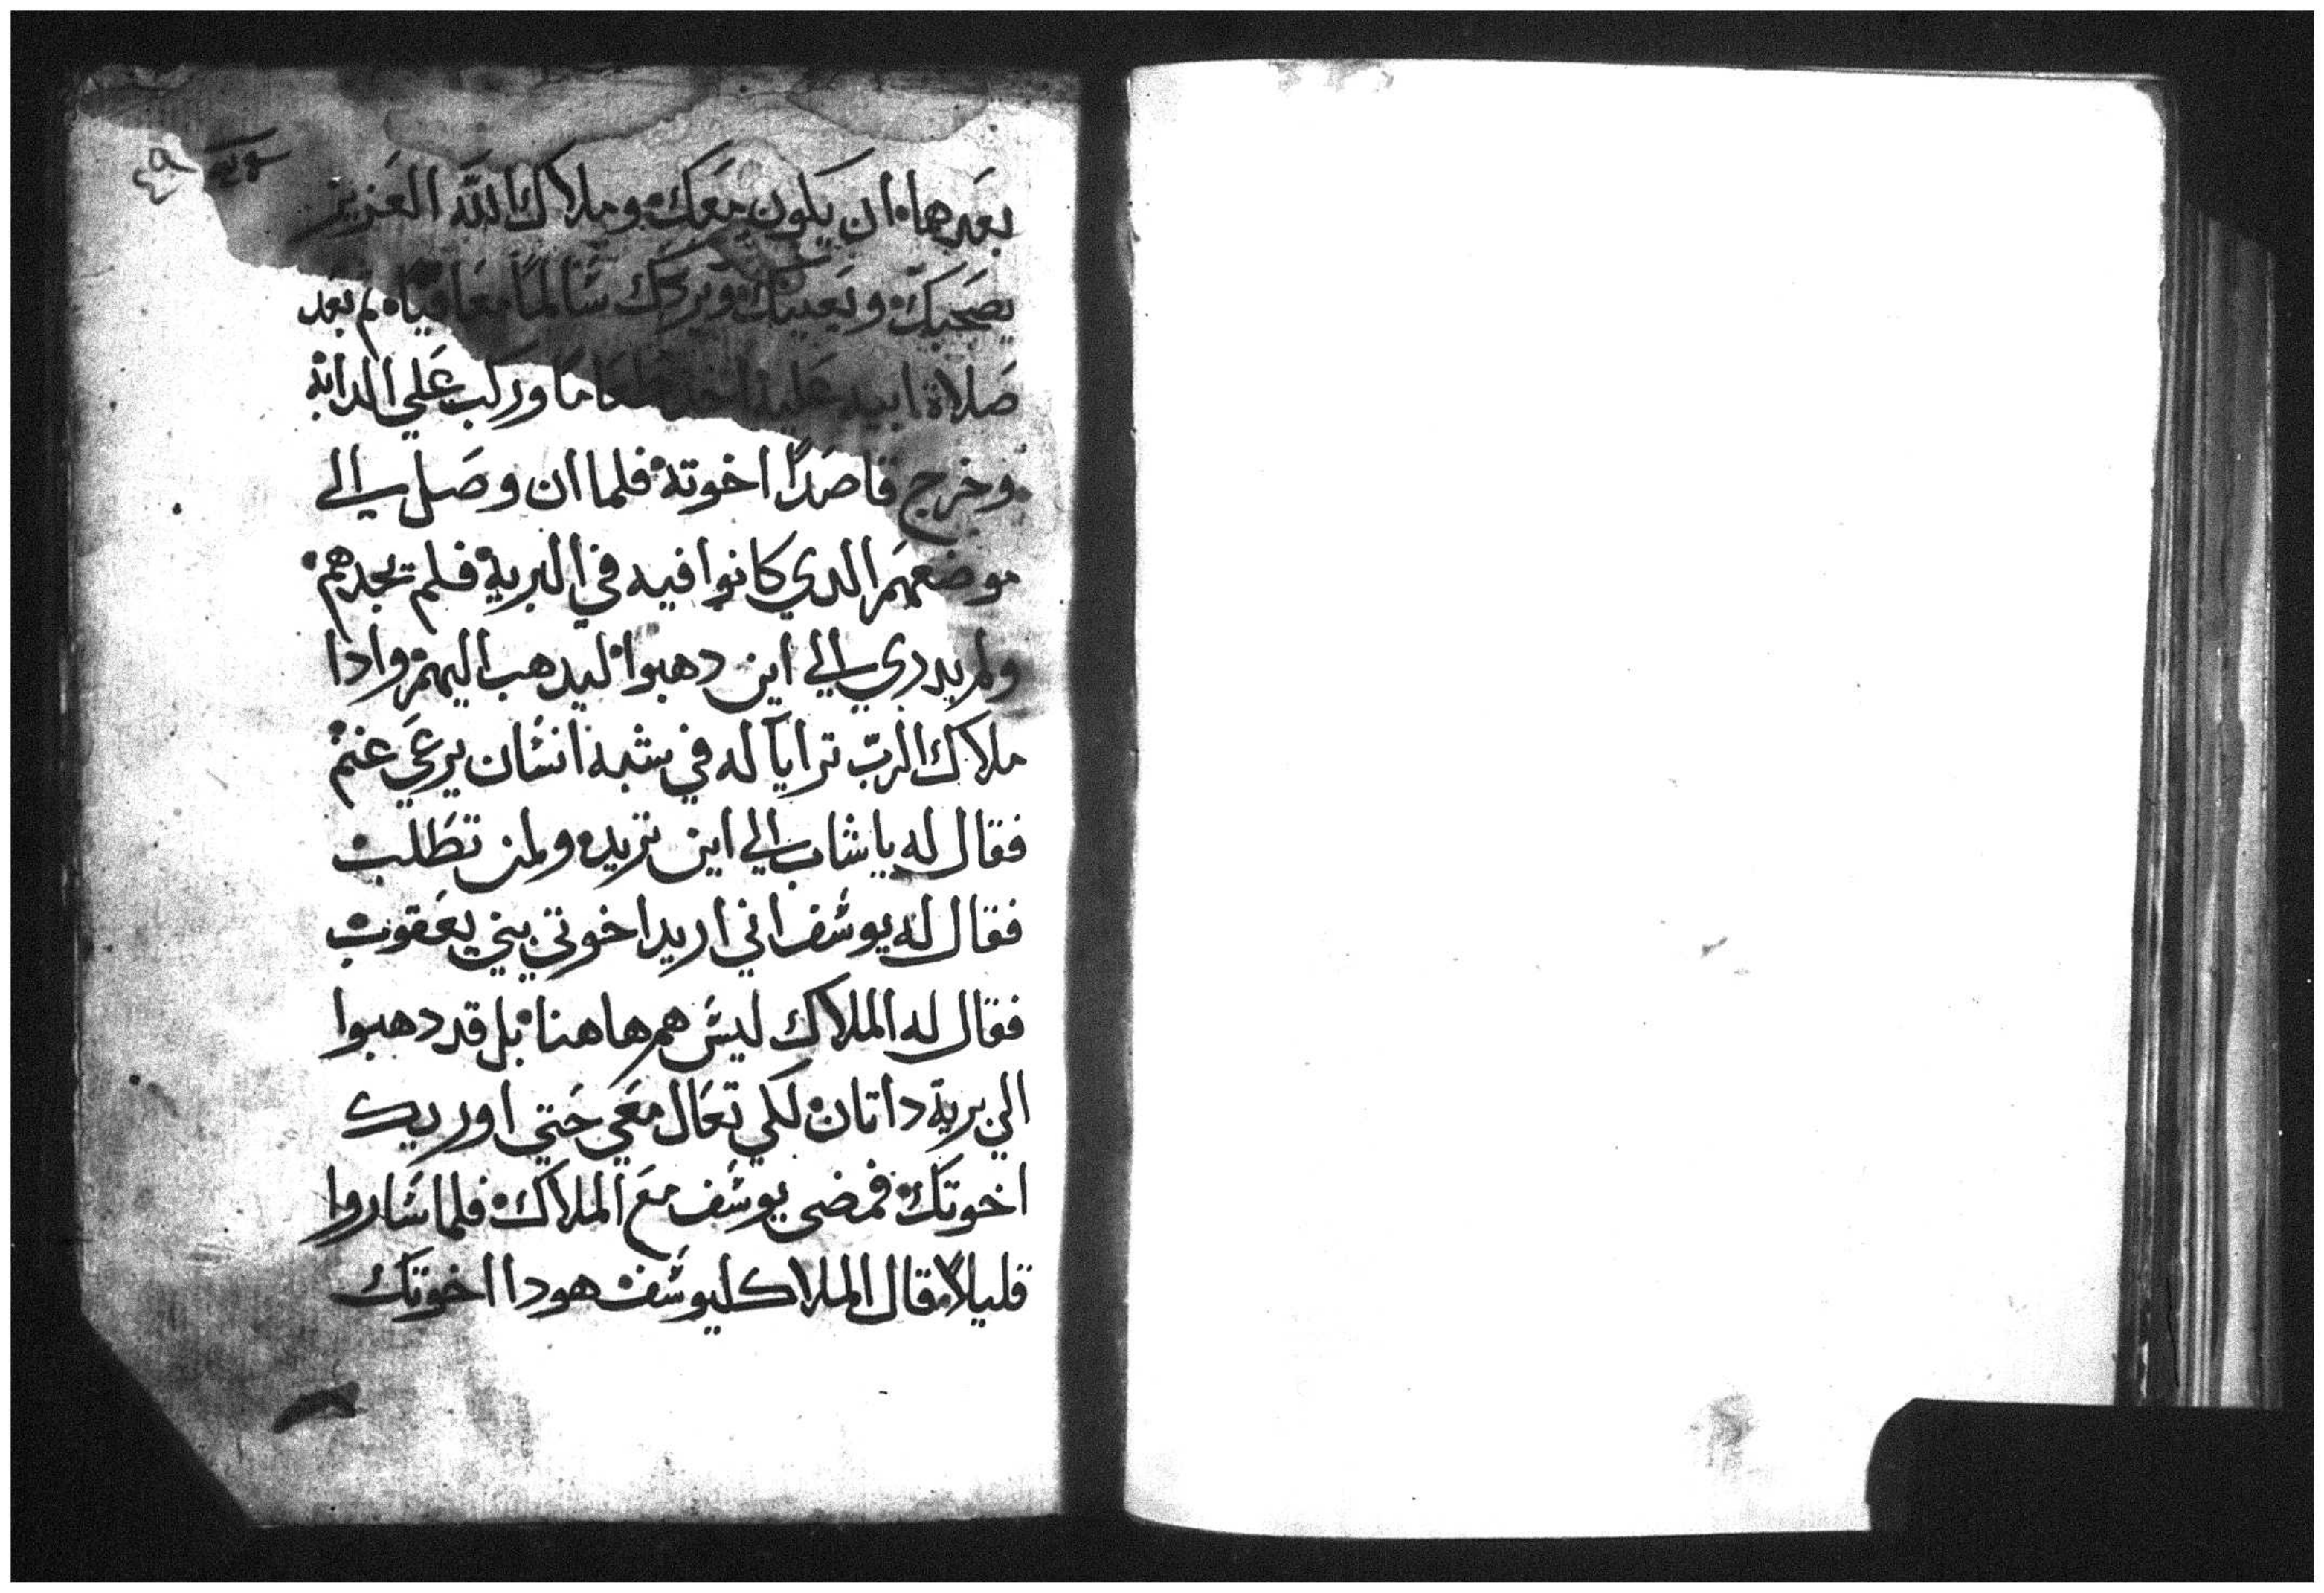 ٤٩
بعدهما ان يكون معك وملاك الله العزيز
يصحبك ويعينك ويردك سالمًا معافيًا ثم بعد
صلاة ابيه عليه اخد طعامًا وركب علي الدابة
وخرج قاصدًا اخوته فلما ان وصل الي
موضعهم الدي كانوا فيه في البرية فلم يجدهم
ولم يدري الي اين دهبوا ليدهب اليهم وادا
ملاك الرب ترايا له في شبه انسان يرعي غنم
فقال له يا شاب الي اين تريد ولمن تطلب
فقال له يوسف اني اريد اخوتي بني يعقوب
فقال له الملاك ليس هم هاهنا بل قد دهبوا
الي برية داتان لكي تعال معي حتي اوريك
اخوتك فمضي يوسف مع الملاك فلما ساروا
قليلاً قال الملاك ليوسف هودا اخوتك